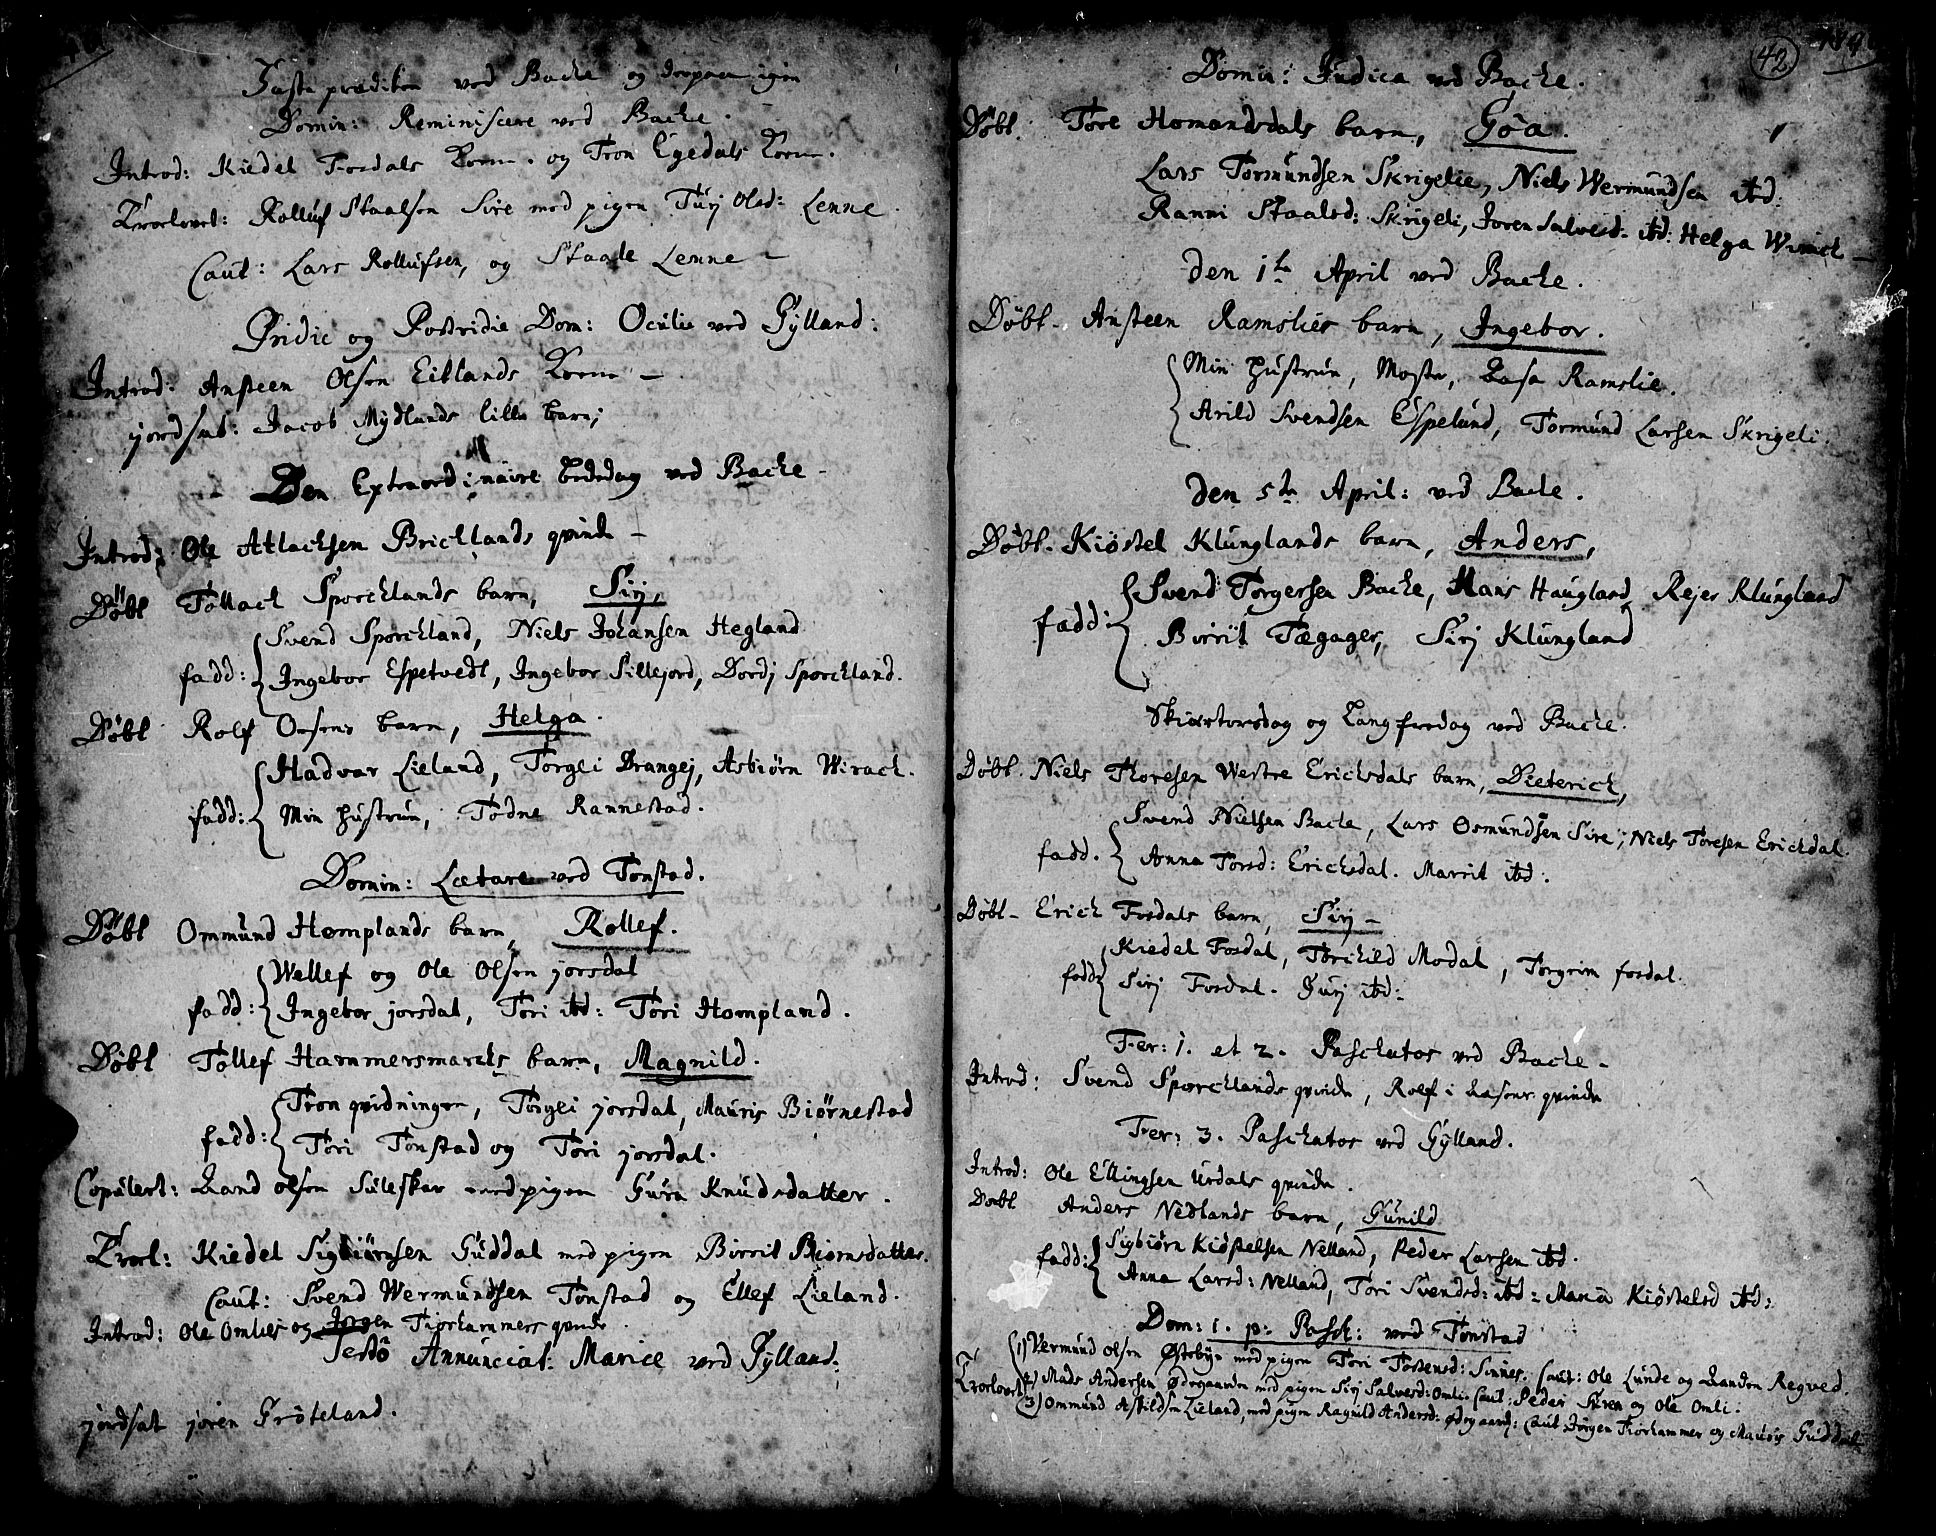 Faste prædiken ved Bache og derpaa igien
Domin: Reminiscere ved Bache.
Introd: Kiedel Fosdals Kone. og Tron Egedals Kone.
Trolovet: Rolluf Staalsen Sire med pigen Turj Olsd: Lenne.
Caut: Lars Rollufsen, og Staale Lenne -
Pridie og Postridie Dom: Oculi ved Gylland:
Introd: Ansteen Olsen Eiklands Kone -
jordsat: Jacob Mydlands lille barn;
Den Extraordinaire bededag ved Bache -
Introd: Ole Atlachsen Brichlands qvinde -
Döbt Tollach Sporchlands barn, Sirj,
fadd: Svend Sporchland, Niels Johansen Hegland
Ingebor Espetvedt, Ingebor Sillejord, Dordj Sporchland.
Döbt Rolf Osens barn, Helga.
fadd: Hadvar Lieland, Torgli Drangej, Asbiörn Wirach.
Min hustrue, Todne Rannestad.
Domin: Lætare ved Tonstad.
Döbt Ommund Homplands barn, Rollef.
Wellef og Ole Olsen josdal
fadd: Ingebor josdal, Tori ibd: Tori Hompland.
Döbt Tollef Hammersmarchs barn, Magnild.
Tron qvidningen, Torgli josdal, Mauris Biörnestad
fadd: Tori Tonstad og Tori josdal.
Copulert: Aand olsen Suleskar med pigen Guro Knudsdatter.
Trol: Kiedel Sigbiörnsen Guddal med pigen Birrit Biornsdatter.
Caut: Svend Wermundsen Tonstad og Ellef Lieland.
Introd: Ole Omlies og Jorgen Fiorhammers qvinde.
Festo Annunciat: Mariæ ved Gylland:
jordsat joren Fröteland.
42
Domin: Judica ved Bache.
Döbt. Tore Homandsdals barn, Göa.
Lars Tormundsen Skrigelie, Niels Wermundsen ibd:
Ranni Staalsd: Skrigeli, Joren Salvesd: ibd: Helga Wirach -
den 1te April ved Bache.
Döbt. Ansteen Ramslies barn, Ingebor.
Min hustrue, Moster, Aasa Ramslie.
Arild Svendsen Espelund, Tormund Larsen Skrigeli.
den 5te April: ved Bache.
Döbt. Kiöstel Klunglands barn, Anders,
fadd: Svend Torgersen Bache, Hans Haugland, Rejer Klungland
Birrit Tægager, Sirj Klungland
Skiertorsdag og Langfredag ved Bache.
Döbt. Niels Thoresen Westre Erichsdals barn, Dieterich,
Svend Nielsen Bache, Lars Osmundsen Sire, Niels Toresen Erichdal.
fadd. Anna Torsd: Erichsdal. Marrit ibd:
Döbt - Erich Fosdals barn, Sirj -
fadd: Kiedel Fosdal, Torchild Modal, Torgrim fosdal.
Sirj Fosdal. Gurj ibd:
Fer: 1. et 2. Paschatos ved Bache -
Introd: Svend Sporchlands qvinde, Rolf i Aasens qvinde
Fer: 3. Paschatos ved Gylland.
Introd: Ole Ellingsen Urdals qvinde.
Döbt Anders Nedlands barn, Gunild
fadd: Sigbiörn Kiöstelsen Nelland, Peder Larsen ibd.
Anna Larsd: Nelland, Tori Svendsd: ibd: Maria Kiöstelsd ibd:
Dom: 1. p: Pasch: ved Tonstad
1) Vermund olsen Östebye med pigen Tori Tostensd: Sinnes. Caut: Ole Lunde og Aanden Regved.
Trolovet 2) Mads Andersen Ödegaarden med pigen Sirj Salvesd: Omli. Caut: Peder Suren og Ole Omli:
3) Ommund Askildsen Lieland, med pigen Ragnild Andersd: ödegaard: Caut Jörgen Fiorhammer og Mauris Guddal